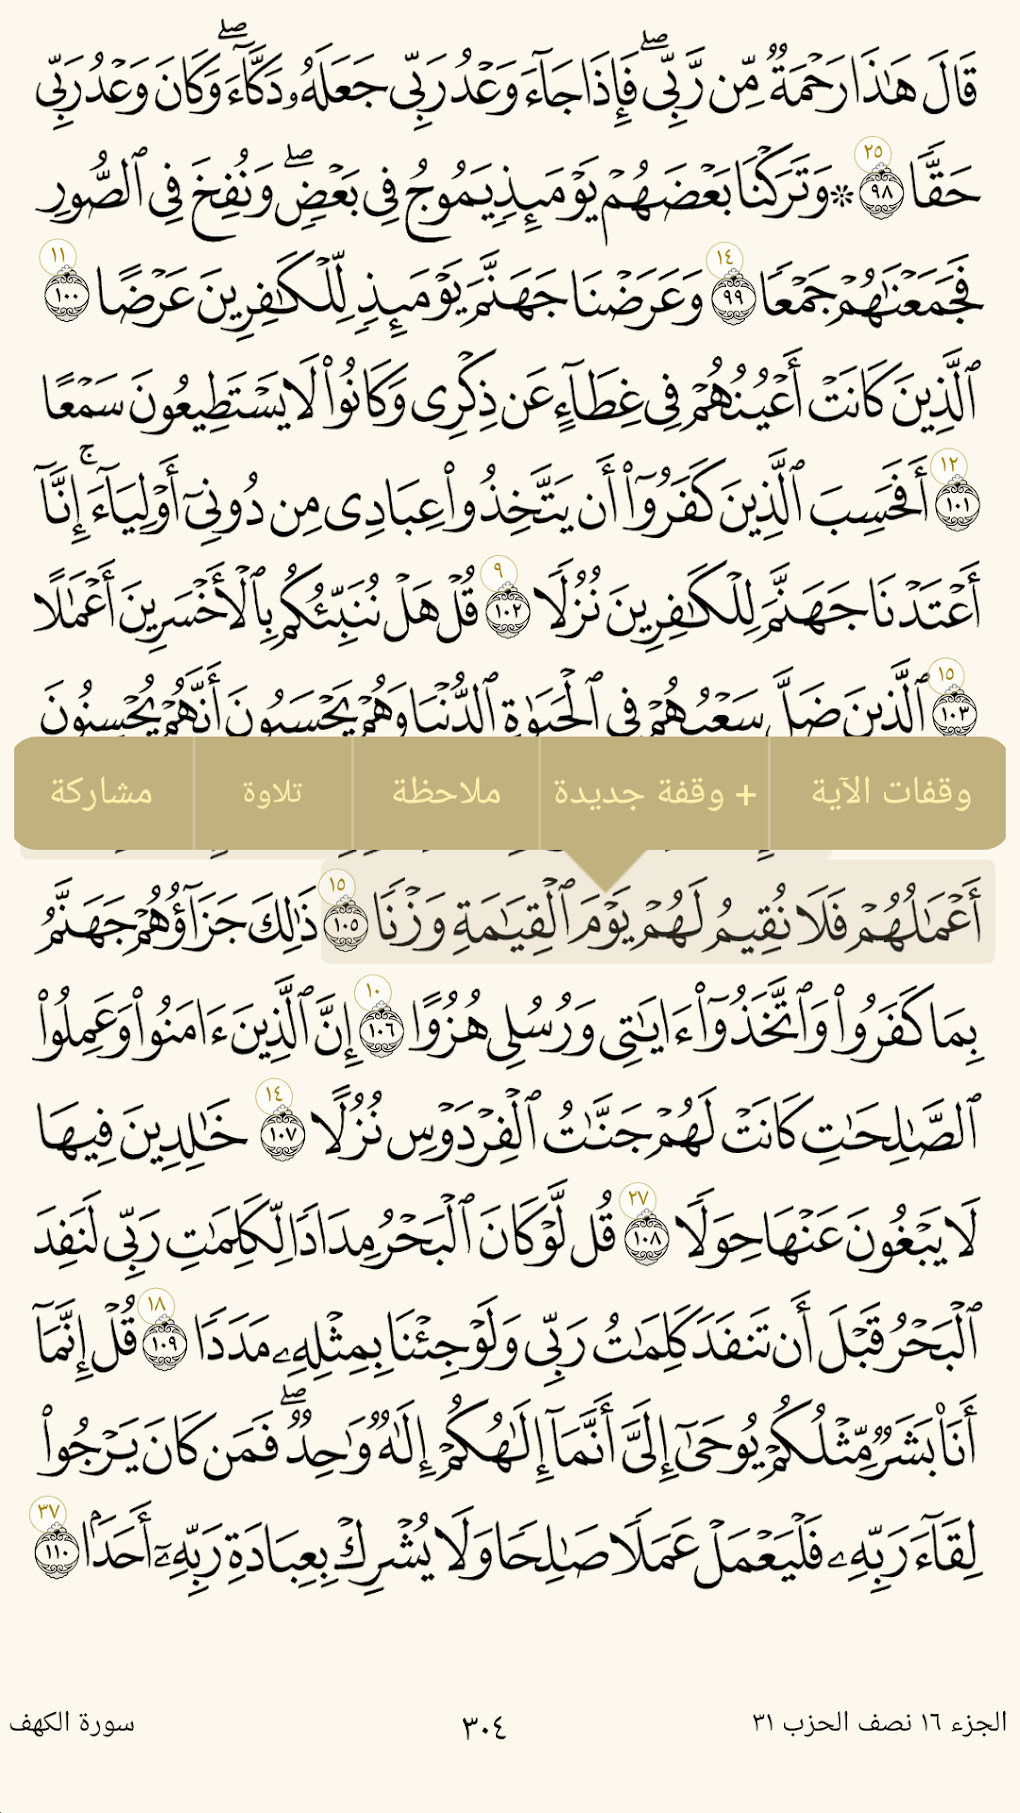 قَالَ هَٰذَا رَحْمَةٌ مِّن رَّبِّي ۖ فَإِذَا جَآءَ وَعْدُ رَبِّي جَعَلَهُۥ دَكَّآءَ ۖ وَكَانَ وَعْدُ رَبِّي
حَقًّا ٩٨ ٢٥ ۞ وَتَرَكْنَا بَعْضَهُمْ يَوْمَئِذٍ يَمُوجُ فِي بَعْضٍ ۖ وَنُفِخَ فِي ٱلصُّورِ
فَجَمَعْنَٰهُمْ جَمْعًا ٩٩ ١٤ وَعَرَضْنَا جَهَنَّمَ يَوْمَئِذٍ لِّلْكَٰفِرِينَ عَرْضًا ١٠٠ ١١
ٱلَّذِينَ كَانَتْ أَعْيُنُهُمْ فِي غِطَآءٍ عَن ذِكْرِي وَكَانُوا۟ لَا يَسْتَطِيعُونَ سَمْعًا
١٠١ ١٢ أَفَحَسِبَ ٱلَّذِينَ كَفَرُوٓا۟ أَن يَتَّخِذُوا۟ عِبَادِي مِن دُونِيٓ أَوْلِيَآءَ ۚ إِنَّآ
أَعْتَدْنَا جَهَنَّمَ لِلْكَٰفِرِينَ نُزُلًا ١٠٢ ٩ قُلْ هَلْ نُنَبِّئُكُم بِٱلْأَخْسَرِينَ أَعْمَٰلًا
١٠٣ ١٥ ٱلَّذِينَ ضَلَّ سَعْيُهُمْ فِي ٱلْحَيَوٰةِ ٱلدُّنْيَا وَهُمْ يَحْسَبُونَ أَنَّهُمْ يُحْسِنُونَ
وقفات الآية + وقفة جديدة ملاحظة تلاوة مشاركة
أَعْمَٰلُهُمْ فَلَا نُقِيمُ لَهُمْ يَوْمَ ٱلْقِيَٰمَةِ وَزْنًا ١٠٥ ١٥ ذَٰلِكَ جَزَآؤُهُمْ جَهَنَّمُ
بِمَا كَفَرُوا۟ وَٱتَّخَذُوٓا۟ ءَايَٰتِي وَرُسُلِي هُزُوًا ١٠٦ ١٠ إِنَّ ٱلَّذِينَ ءَامَنُوا۟ وَعَمِلُوا۟
ٱلصَّٰلِحَٰتِ كَانَتْ لَهُمْ جَنَّٰتُ ٱلْفِرْدَوْسِ نُزُلًا ١٠٧ ١٤ خَٰلِدِينَ فِيهَا
لَا يَبْغُونَ عَنْهَا حِوَلًا ١٠٨ ٢٧ قُل لَّوْ كَانَ ٱلْبَحْرُ مِدَادًا لِّكَلِمَٰتِ رَبِّي لَنَفِدَ
ٱلْبَحْرُ قَبْلَ أَن تَنفَدَ كَلِمَٰتُ رَبِّي وَلَوْ جِئْنَا بِمِثْلِهِۦ مَدَدًا ١٠٩ ١٨ قُلْ إِنَّمَآ
أَنَا۠ بَشَرٌ مِّثْلُكُمْ يُوحَىٰٓ إِلَيَّ أَنَّمَآ إِلَٰهُكُمْ إِلَٰهٌ وَٰحِدٌ ۖ فَمَن كَانَ يَرْجُوا۟
لِقَآءَ رَبِّهِۦ فَلْيَعْمَلْ عَمَلًا صَٰلِحًا وَلَا يُشْرِكْ بِعِبَادَةِ رَبِّهِۦٓ أَحَدًۢا ١١٠ ٣٧
الجزء ١٦ نصف الحزب ٣١ ٣٠٤ سورة الكهف